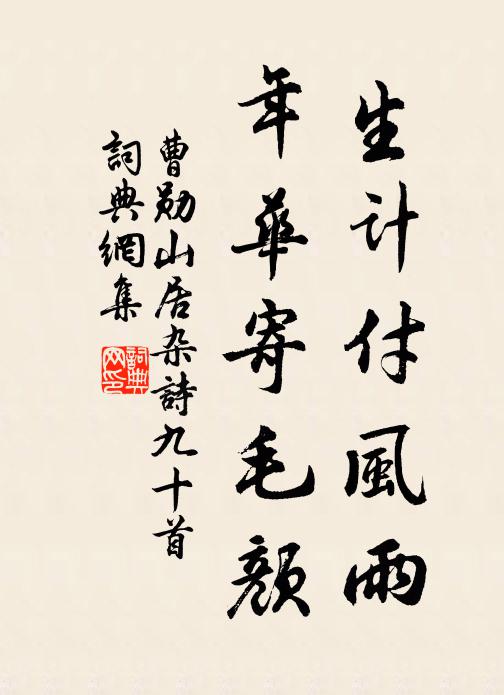 生计付風雨
年華寄毛顏
曹勋山居杂詩九十首
詞典網集
詞典网印